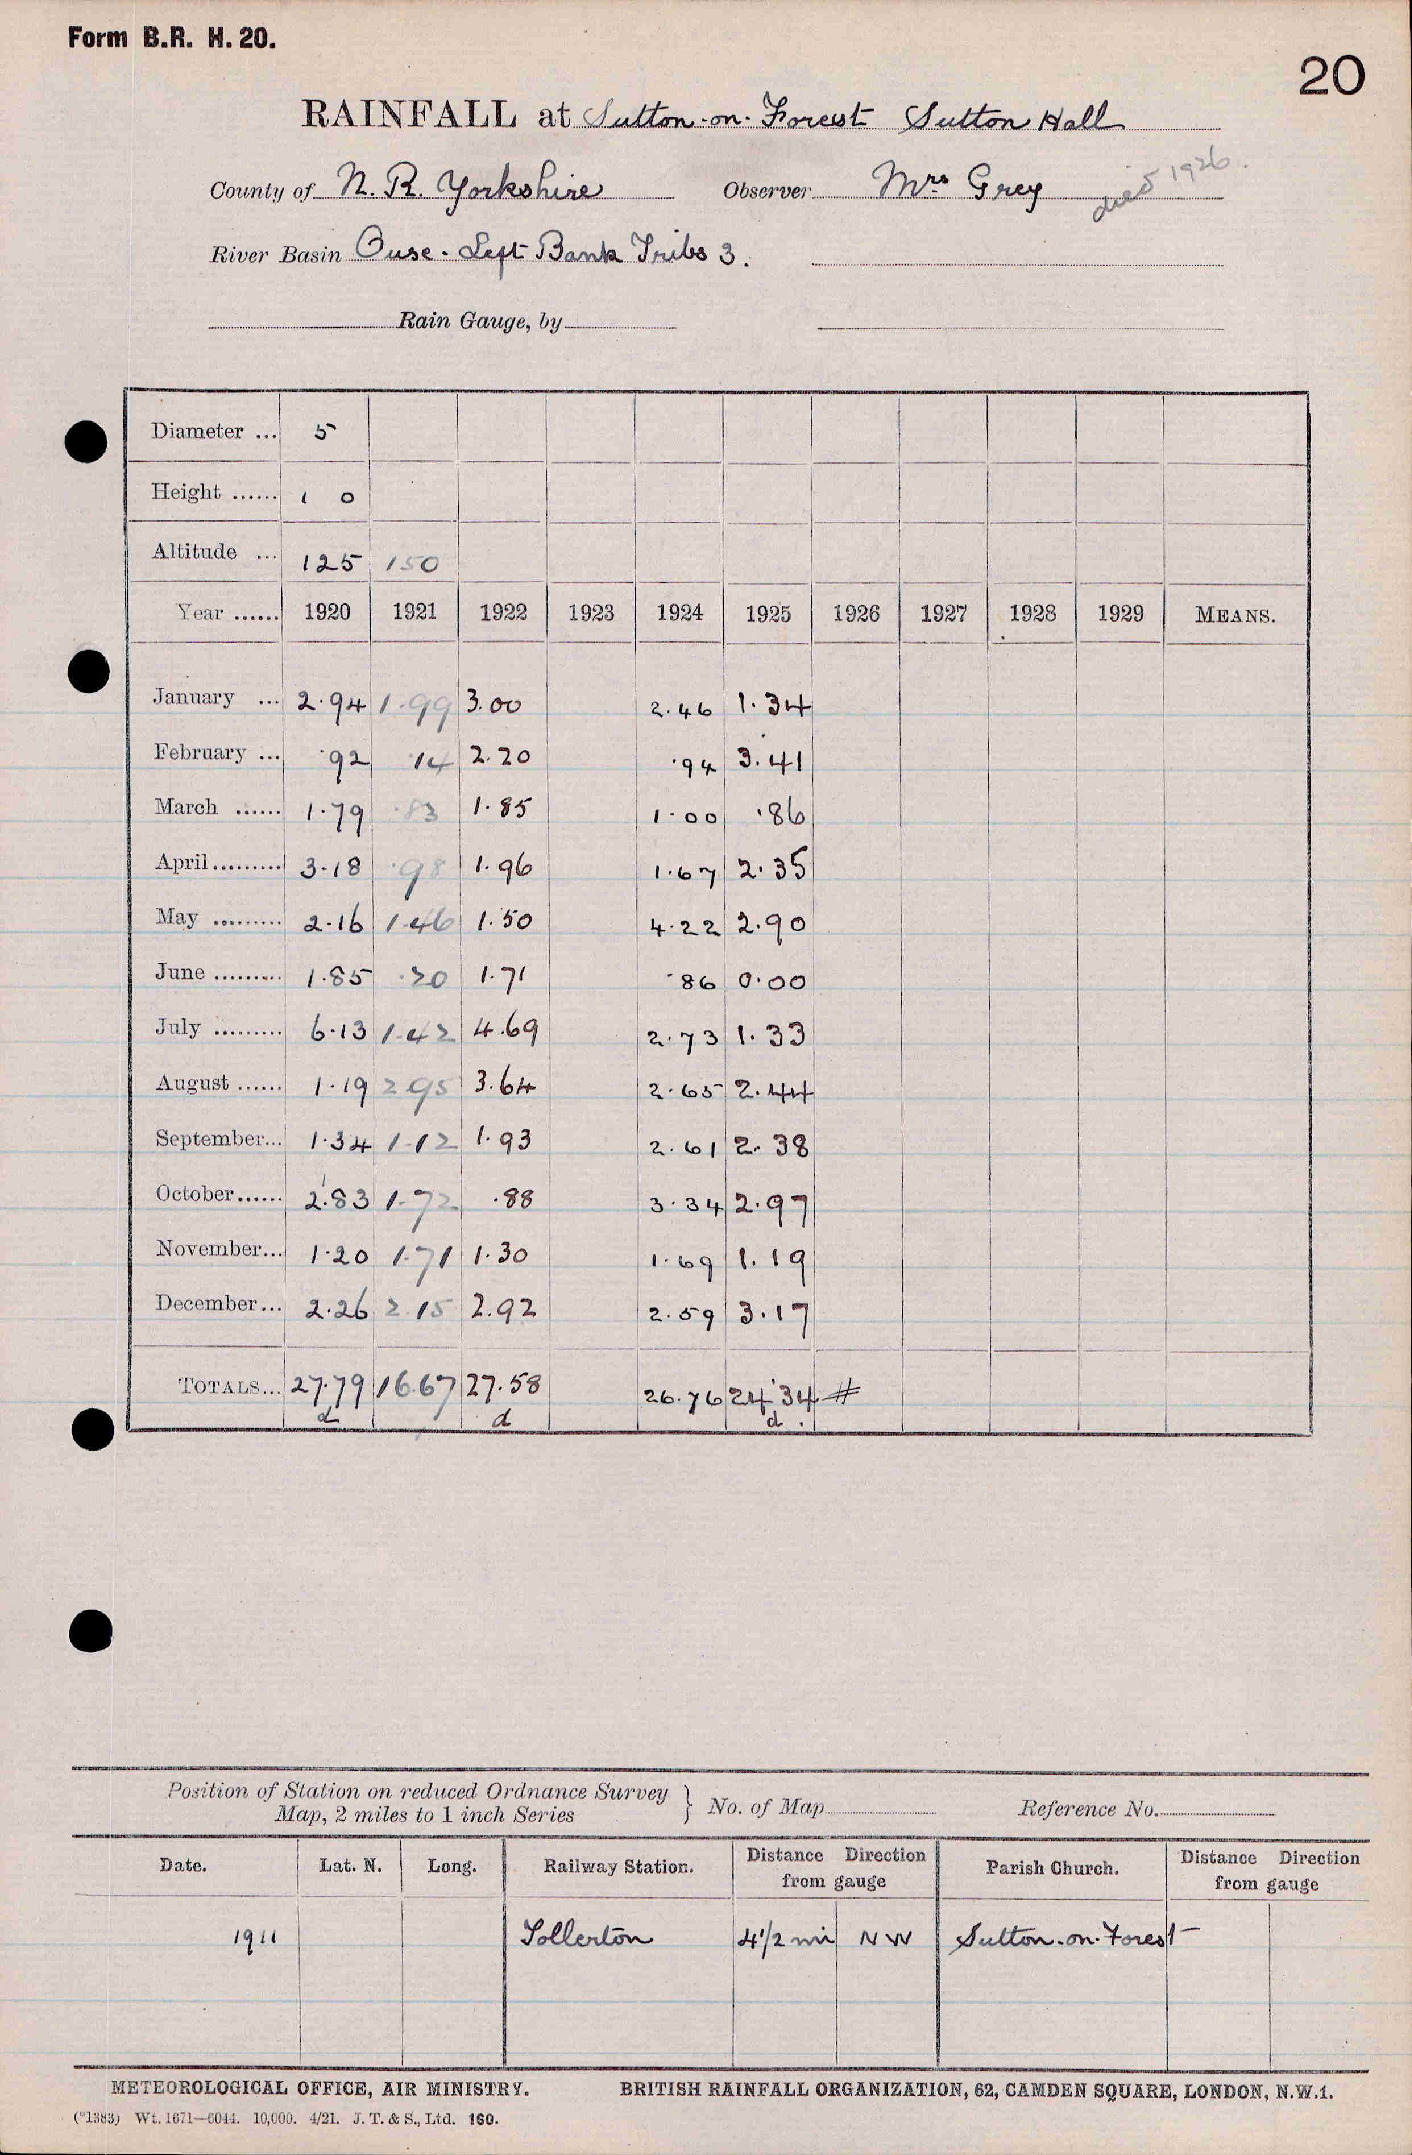 Form B.R. H. 20.
20
RAINFALL at Sutton-on-Forest Sutton Hall
County of N. R. Yorkshire Observer Mrs Grey died 1926.
River Basin Ouse. Left Bank Tribs 3.
Rain Gauge, by
Diameter ... 5
Height ...... 1 0
Altitude ... 125 150
Year ...... 1920 1921 1922 1923 1924 1925 1926 1927 1928 1929 MEANS.
January ... 2.94 1.99 3.00 2.46 1.34
February ... .92 .14 2.20 .94 3.41
March ...... 1.79 .83 1.85 1.00 .86
April......... 3.18 .98 1.96 1.67 2.35
May ......... 2.16 1.46 1.50 4.22 2.90
June ......... 1.85 .20 1.71 .86 0.00
July ......... 6.13 1.42 4.69 2.73 1.33
August ...... 1.19 2.95 3.64 2.65 2.44
September... 1.34 1.12 1.93 2.61 2.38
October...... 2.83 1.72 .88 3.34 2.97
November... 1.20 1.71 1.30 1.69 1.19
December... 2.26 2.15 2.92 2.59 3.17
TOTALS... 27.79 16.67 27.58 26.76 24.34 #
d d d.
Position of Station on reduced Ordnance Survey
Map, 2 miles to 1 inch Series } No. of Map Reference No.
Date. Lat. N. Long. Railway Station. Distance Direction from gauge Parish Church. Distance Direction from gauge
1911 Tollerton 4 1/2 mi NW Sutton-on-Forest
METEOROLOGICAL OFFICE, AIR MINISTRY. BRITISH RAINFALL ORGANIZATION, 62, CAMDEN SQUARE, LONDON, N.W.1.
(*1383) Wt. 1671—6044. 10,000. 4/21. J. T. & S., Ltd. 160.